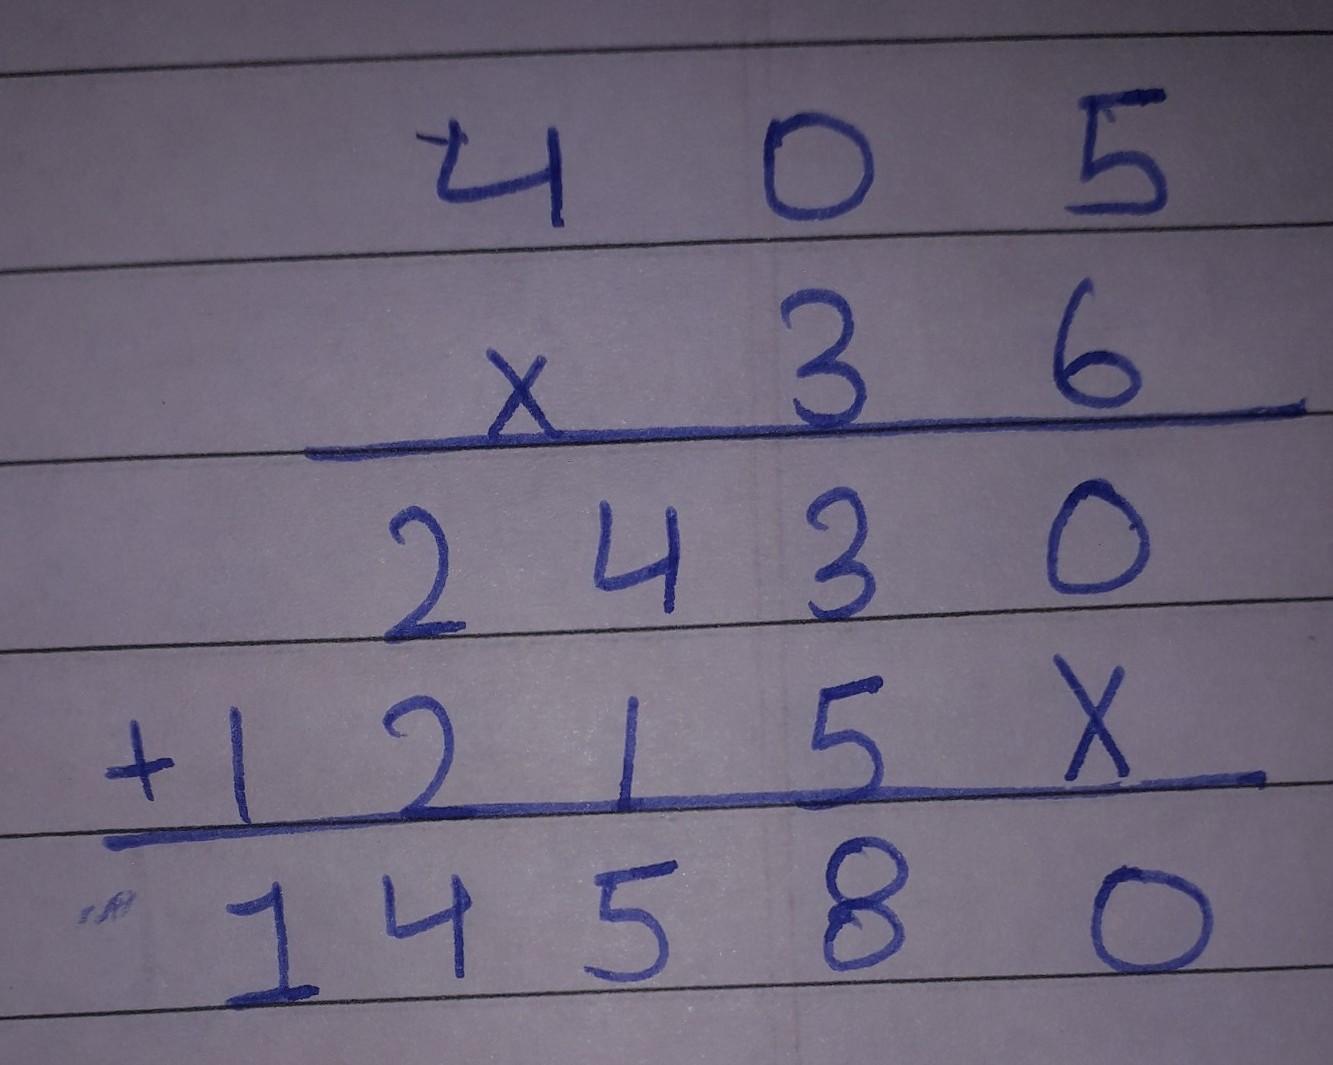 4 0 5
x 3 6
2 4 3 0
+ 1 2 1 5 X
1 4 5 8 0